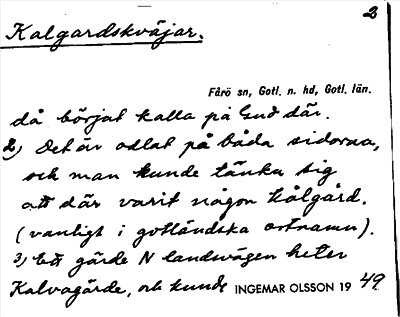 2
Kalgardskväjar.
Fårö sn, Gotl. n. hd, Gotl. län.
då börjat kalla på Gud där.
2) Det är odlat på båda sidorna,
och man kunde tänka sig
att där varit någon kålgård.
(vanligt i gotländska ortnamn).
3) Ett gärde N landsvägen heter
Kalvagärde, och kunde INGEMAR OLSSON 1949